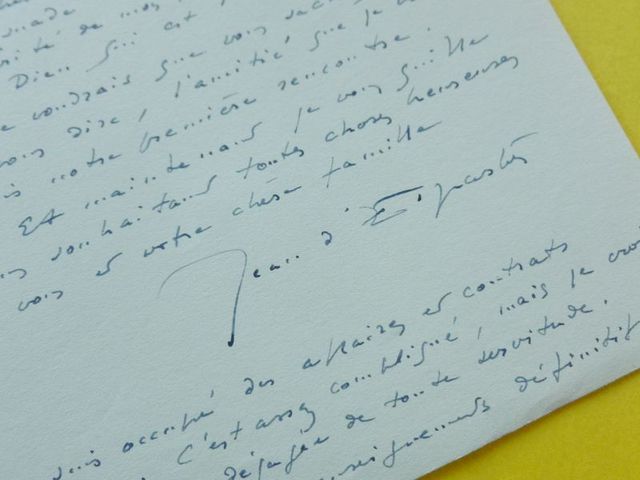 made
de mes
Dieu qui est,
voudrais que vous
vous dire, l'amitié que je
notre première rencontre.
Et maintenant je vous quitte
souhaitant toutes choses heureuses
vous et votre chère famille
Jean d'
suis occupé des affaires et contrats
C'est assez compliqué, mais je crois
dégagée de toute servitude.
renseignements définitifs